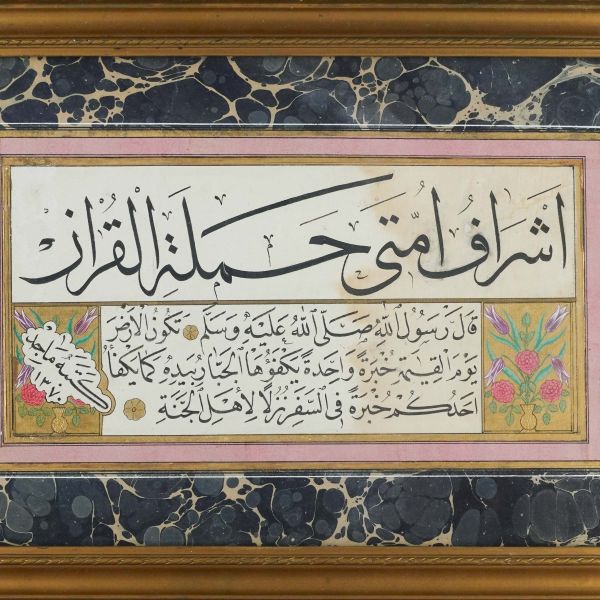 اشراف امتى حملة القرآن
قال رسول الله صلى الله عليه وسلم تكون الأرض
يوم القيمة خبزة واحدة يكفؤها الجبار بيده كما يكفأ
احدكم خبزة فى السفر نزلا لأهل الجنة
كتبه ماجد
١٣١٠